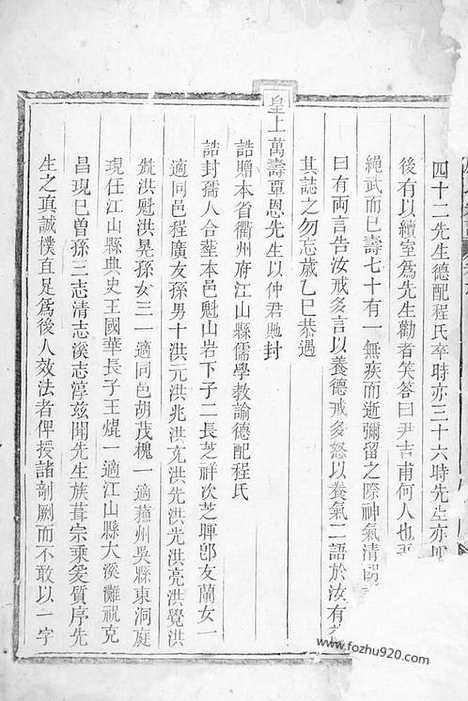 四十二先生德配程氏卒時亦三十六時先生亦
後有以續室為先生勸者笑答曰尹吉甫何人也
繩武而已壽七十有一無疾而逝彌留之際神氣清
曰有兩言告汝戒多言以養德戒多怒以養氣二語於汝有
其誌之勿忘歲乙巳恭遇
皇上萬壽覃恩先生以仲君貤封
誥贈本省衢州府江山縣儒學教諭德配程氏
誥封孺人合塟本邑魁山岩下子二長芝祥次芝暉卽友蘭女一
適同邑程廣友孫男十洪元洪兆洪充洪先洪亮洪覺洪
洪魁洪晃孫女三一適同邑胡茂槐一適蘓州吳縣東洞庭
現任江山縣典史王國華長子王焜一適江山縣大溪灘祝克
昌現巳曽孫三志清志溪志淳兹聞先生族葺宗乘爰質序先
生之真誠樸直足為後人效法者俾授諸剞劂而不敢以一字
www.fozhu920.com